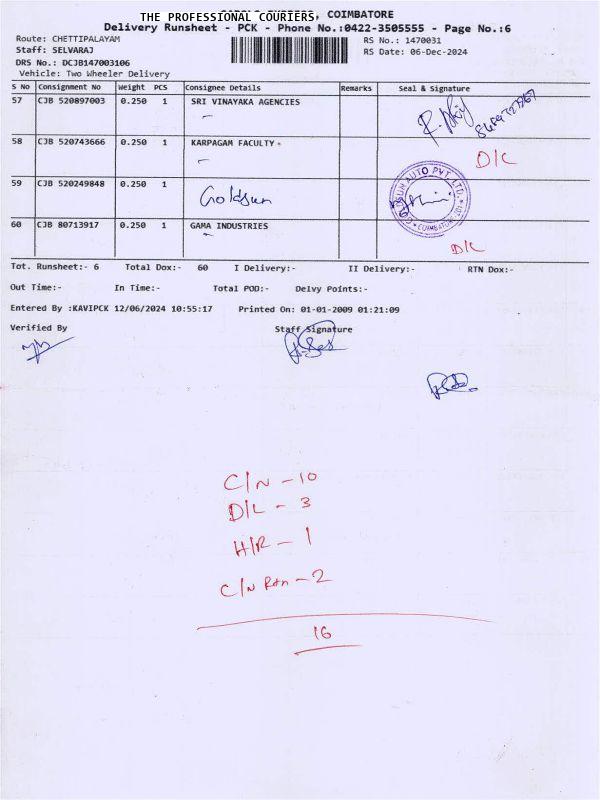 THE PROFESSIONAL COURIERS, COIMBATORE
Delivery Runsheet - PCK - Phone No.:0422-3505555 - Page No.:6
Route: CHETTIPALAYAM
RS No.: 1470031
Staff: SELVARAJ
RS Date: 06-Dec-2024
DRS No.: DCJB147003106
Vehicle: Two Wheeler Delivery
S No Consignment No Weight PCS Consignee Details Remarks Seal & Signature
57 CJB 520897003 0.250 1 SRI VINAYAKA AGENCIES
58 CJB 520743666 0.250 1 KARPAGAM FACULTY
D/L
59 CJB 520249848 0.250 1 Goldsun
60 CJB 80713917 0.250 1 GAMA INDUSTRIES
D/L
Tot. Runsheet:- 6 Total Dox:- 60 I Delivery:- II Delivery:- RTN Dox:-
Out Time:- In Time:- Total POD:- Delvy Points:-
Entered By :KAVIPCK 12/06/2024 10:55:17 Printed On: 01-01-2009 01:21:09
Verified By Staff Signature
C/N - 10
D/L - 3
H/R - 1
C/N Rtn - 2
16